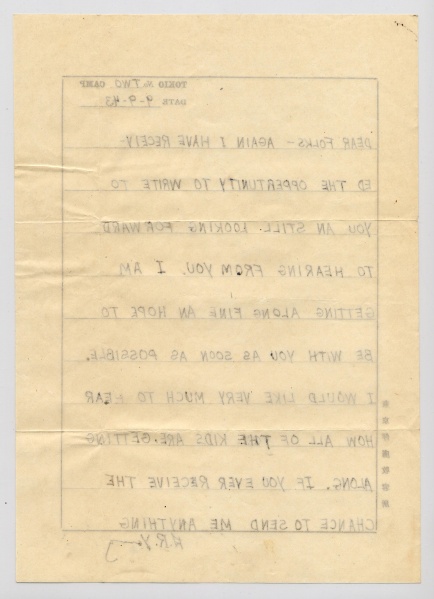 TOKIO No TWO CAMP
DATE 9-9-43
DEAR FOLKS - AGAIN I HAVE RECEIV-
ED THE OPPERTUNITY TO WRITE TO
YOU AN STILL LOOKING FORWARD
TO HEARING FROM YOU. I AM
GETTING ALONG FINE AN HOPE TO
BE WITH YOU AS SOON AS POSSIBLE.
I WOULD LIKE VERY MUCH TO HEAR
HOW ALL OF THE KIDS ARE GETTING
ALONG. IF YOU EVER RECEIVE THE
CHANCE TO SEND ME ANYTHING
H.R.Y.